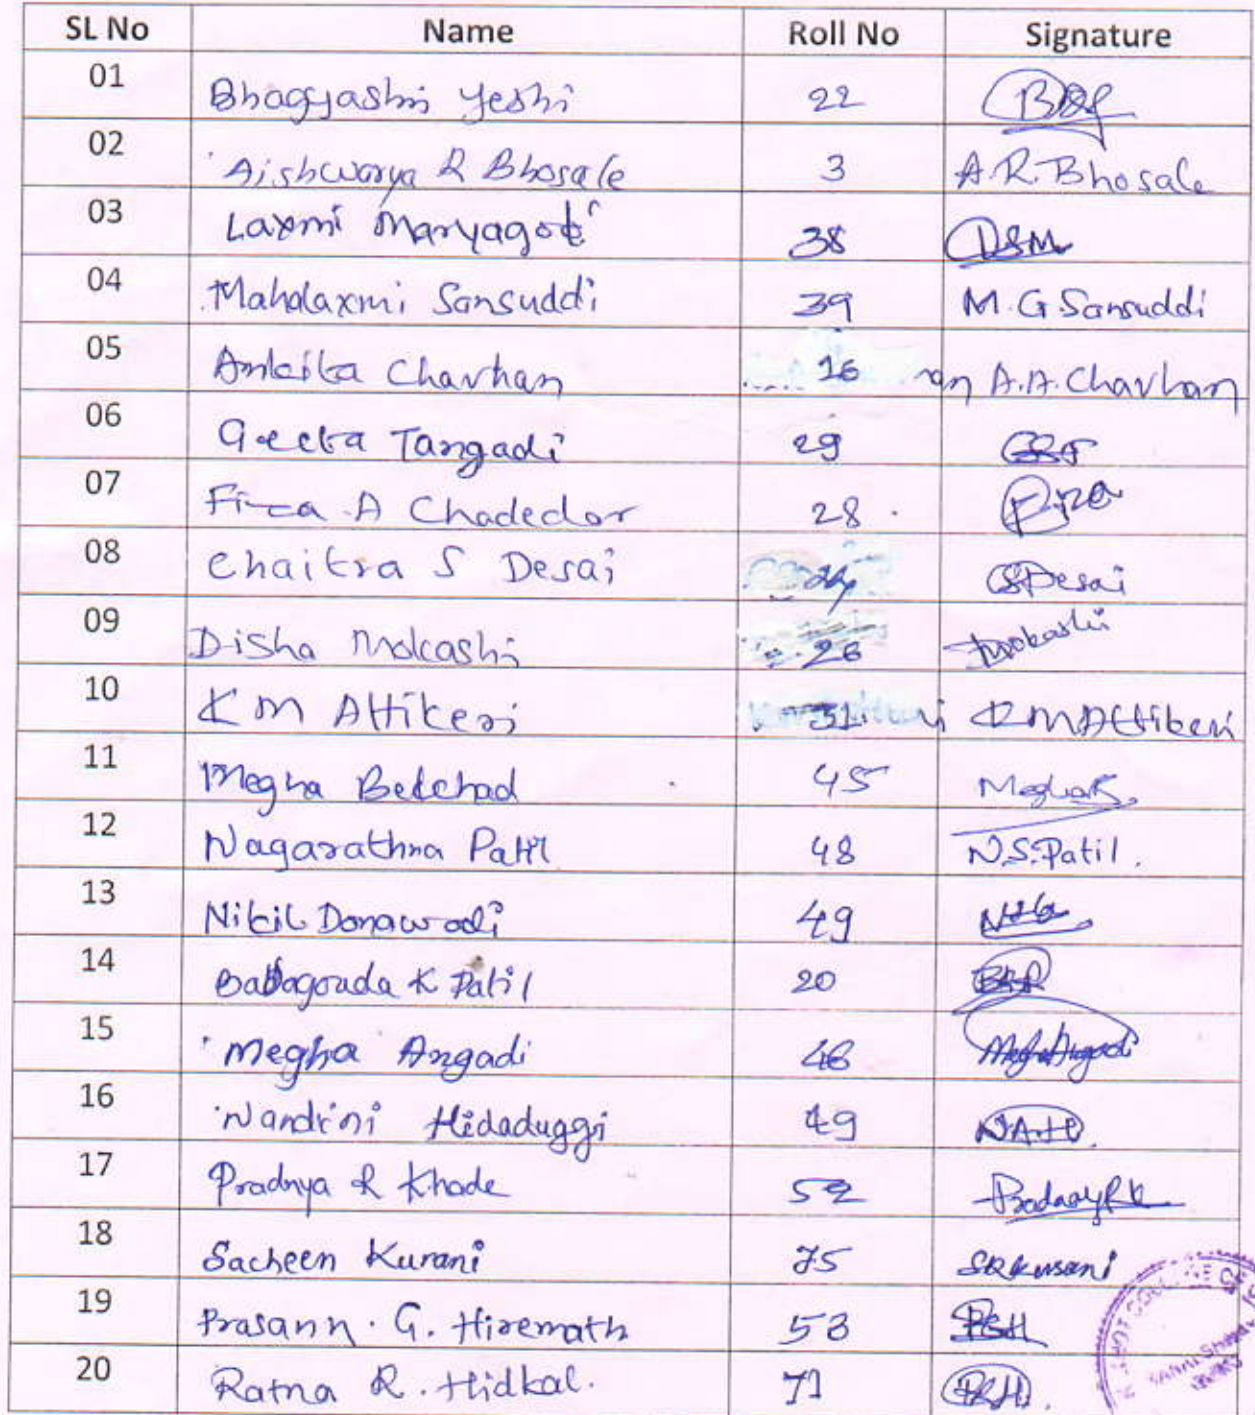 SL No Name Roll No Signature
01 Bhagyashri Yeshi 22
02 Aishwarya R Bhosale 3 A.R.Bhosale
03 Laxmi 38 DSM
04 Mahalaxmi Sansuddi 39 M.G.Sansuddi
05 Ankita Chavhan 16 an A.A.Chavhan
06 Geeta Tangadi 29
07 Fiza A Chadedar 28 Fiza
08 Chaitra S Desai 24 CSDesai
09 Disha Mokashi 26 Mokashi
10 K M Attikeri 31 K M Attikeri
11 Megha Betchad 45
12 Nagarathna Patil 48 N.S.Patil.
13 Nikil Donawadi 49
14 Babagouda K Patil 20 BKP
15 Megha Angadi 46 Megha Angadi
16 Nandini Hidaduggi 49 NAH
17 Pradnya R Khode 52
18 Sacheen Kurani 75 SRKurani
19 Prasann. G. Hiremath 53 PGH
20 Ratna R. Hidkal. 71 RRH.